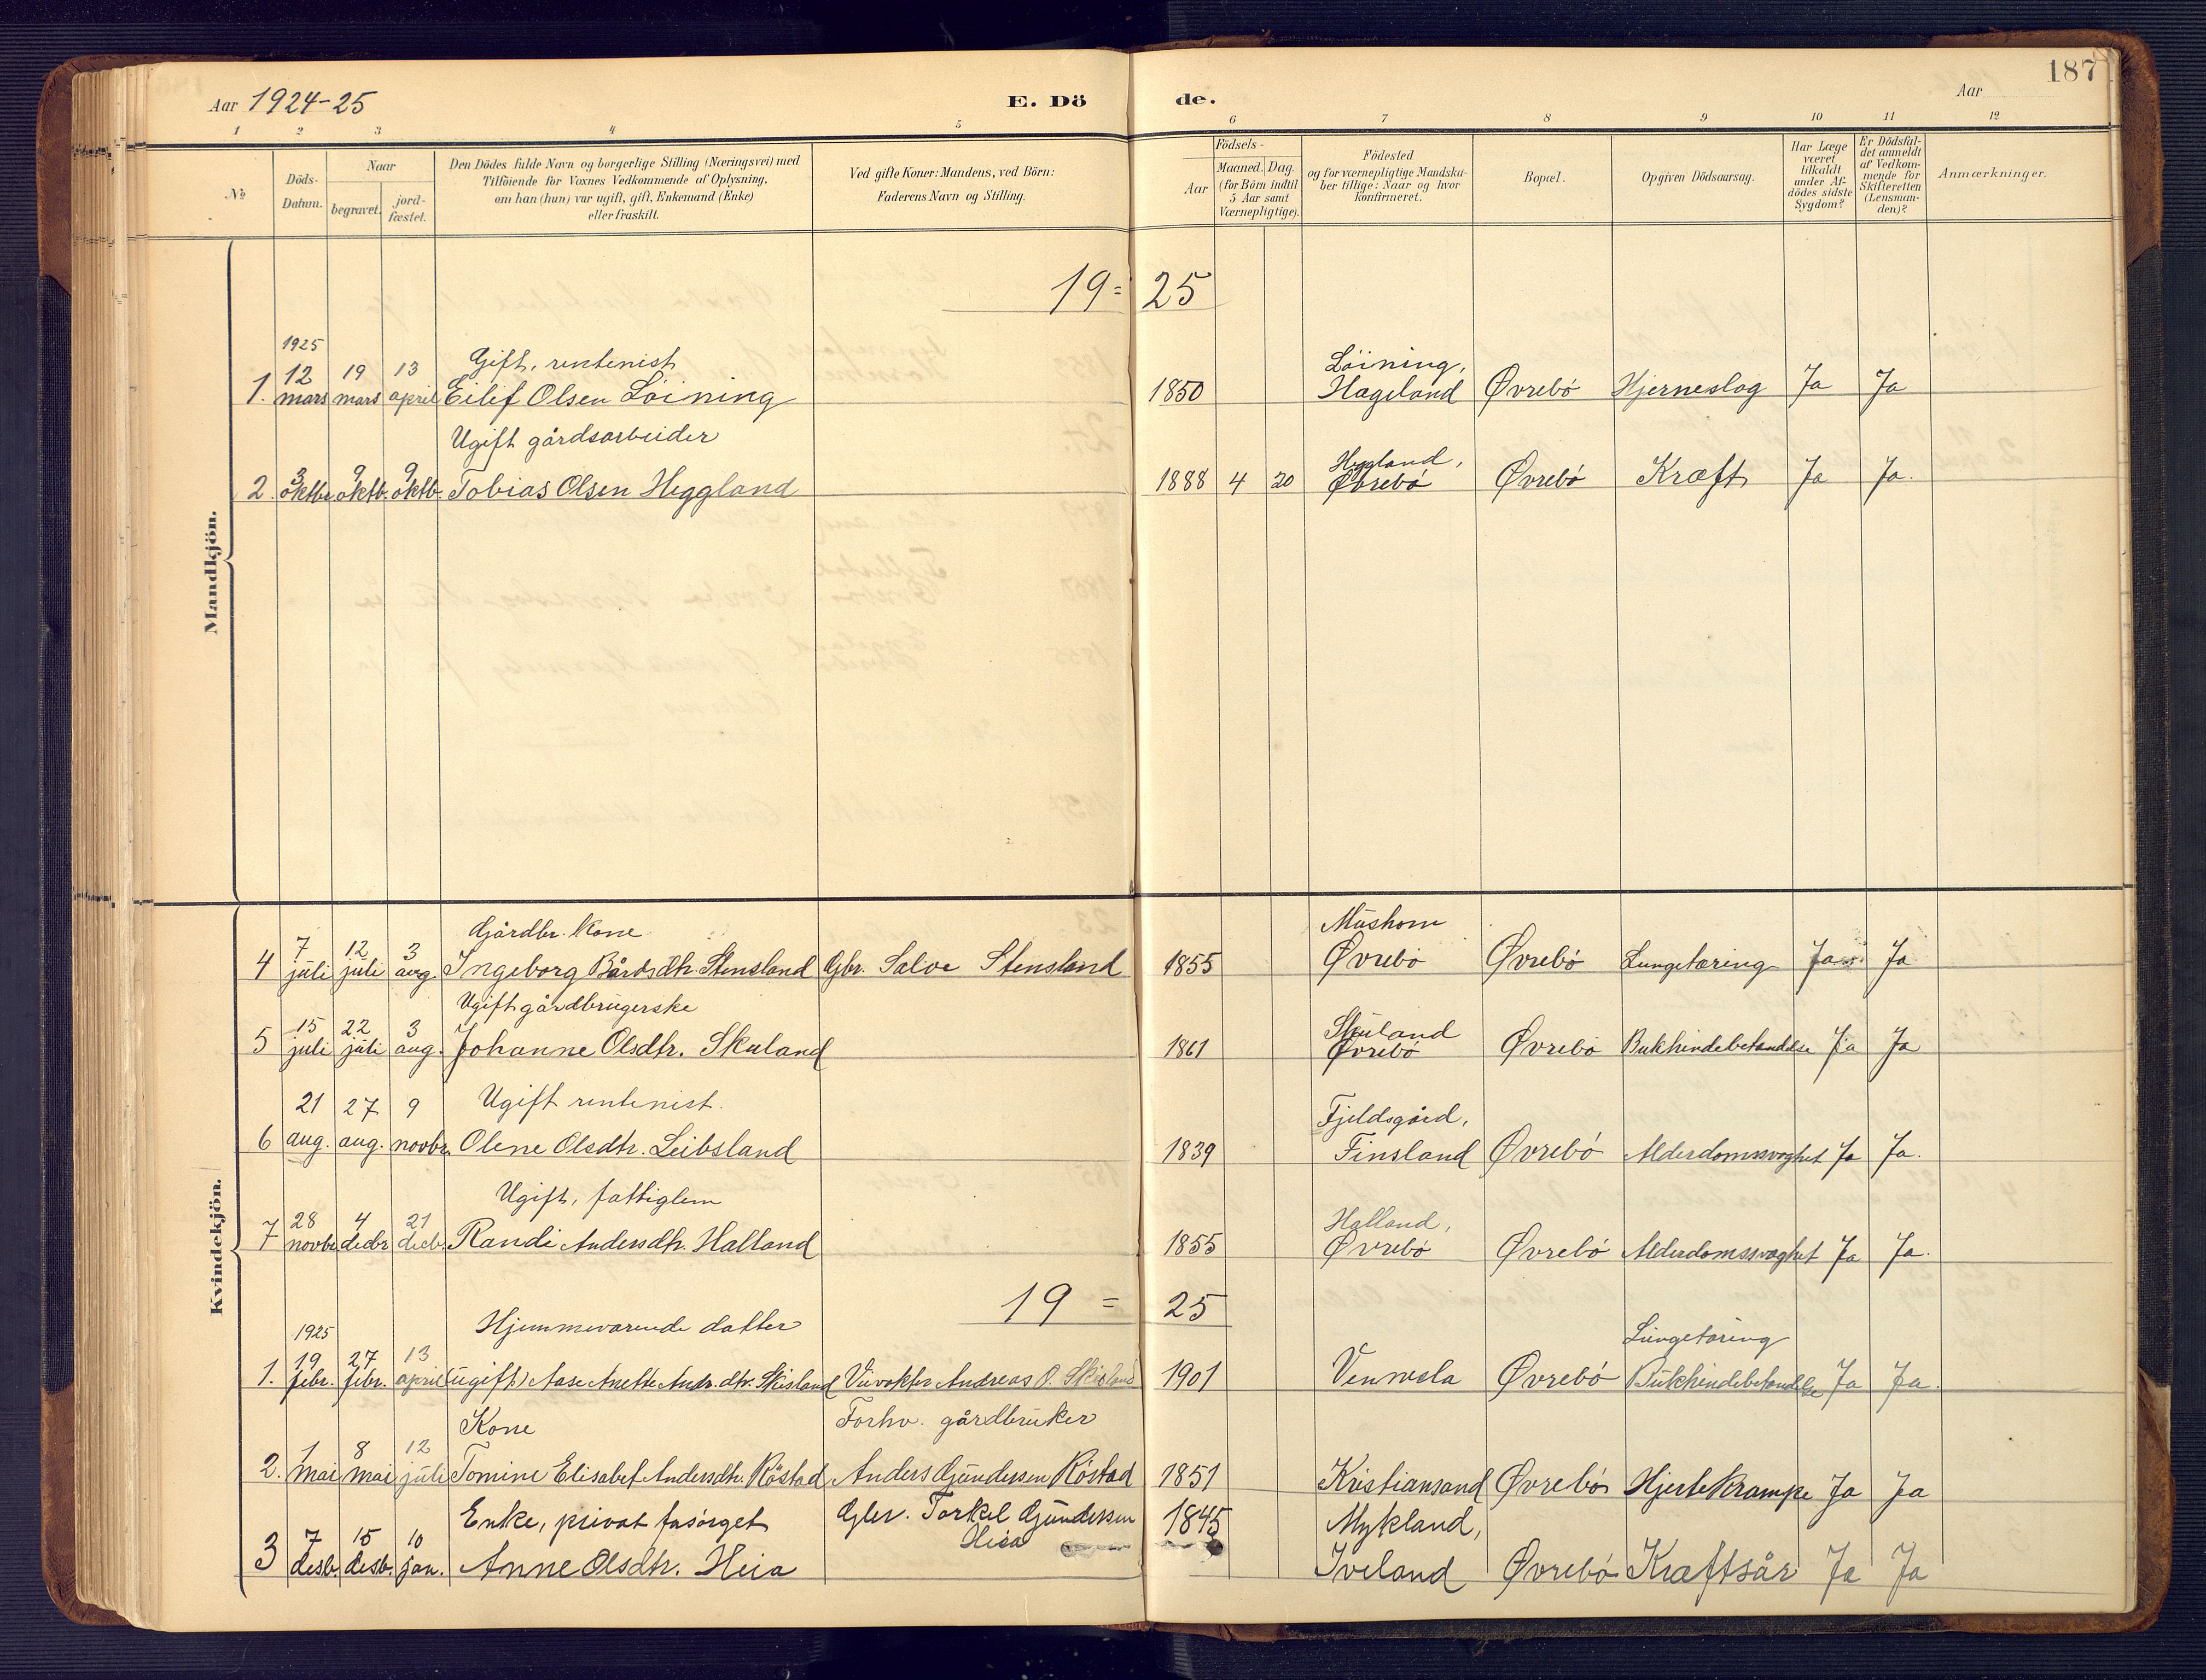 187
Aar 1924-25
E. Dö
de.
Aar
1 2 3 4 5 6 7 8 9 10 11 12
No
Döds-
Datum.
Naar
begravet.
jord-
fæstet.
Den Dödes fulde Navn og borgerlige Stilling (Næringsvei) med
Tilföiende for Voxnes Vedkommende af Oplysning,
om han (hun) var ugift, gift, Enkemand (Enke)
eller fraskilt.
Ved gifte Koner: Mandens, ved Börn:
Faderens Navn og Stilling.
Födsels-
Aar
Maaned. Dag.
(for Börn indtil
5 Aar samt
Værnepligtige).
Födested
og for værnepligtige Mandska-
ber tillige: Naar og hvor
konfirmeret.
Bopæl.
Opgiven Dödsaarsag.
Har Læge
været
tilkaldt
under Af-
dödes sidste
Sygdom?
Er Dödsfal-
det anmeldt
af Vedkom-
mende for
Skifteretten
(Lensman-
den)?
Anmærkninger.
Mandkjön.
19 = 25
1925
12 19 13 Gift, rentenist Löining,
1. mars mars april Eilef Olsen Löining 1850 Hageland Øvrebö Hjerneslag Ja Ja
Ugift gårdsarbeider
3 9 9 Heggland,
2. oktbr oktb. oktb. Tobias Olsen Heggland 1888 4 20 Øvrebö Øvrebö Kræft Ja Ja.
Kvindekjön.
Gårdbr. kone
7 12 3
4 juli juli aug. Ingeborg Bårdsdtr. Stensland Gbr. Salve Stensland 1855 Øvrebö Øvrebö Lungetæring Ja Ja
Ugift gårdbrugerske
15 22 3 Skuland
5 juli juli aug. Johanne Olsdtr. Skuland 1861 Øvrebö Øvrebö Bukhindebetændelse Ja Ja
21 27 9 Ugift rentenist. Fjeldsgård,
6 aug. aug. novbr. Olene Olsdtr. Leibsland 1839 Finsland Øvrebö Alderdomssvaghet Ja Ja.
Ugift, fattiglem
28 4 21 Halland,
7 novbr decbr decb. Randi Andersdtr. Halland 1855 Øvrebö Øvrebö Alderdomssvaghet Ja Ja.
19 = 25
1925 Hjemmeværende datter Lungetæring
19 27 13
1. febr. febr. april (ugift) Aase Anette Andr. dtr. Skisland Andreas O. Skisland 1901 Vennesla Øvrebö Bukhindebetændelse Ja Ja.
Kone Forhv. gårdbruker
1 8 12
2. mai mai juli Tomine Elisabet Andersdtr. Röstad Anders Gundersen Röstad 1851 Kristiansand Øvrebö Hjertekrampe Ja Ja
Enke, privat fasörget Gbr. Torkel Gundersen 1845 Mykland,
7 15 10 Heia
3 desb. desb. jan. Anne Olsdtr. Heia Iveland Øvrebö Kræftsår Ja Ja